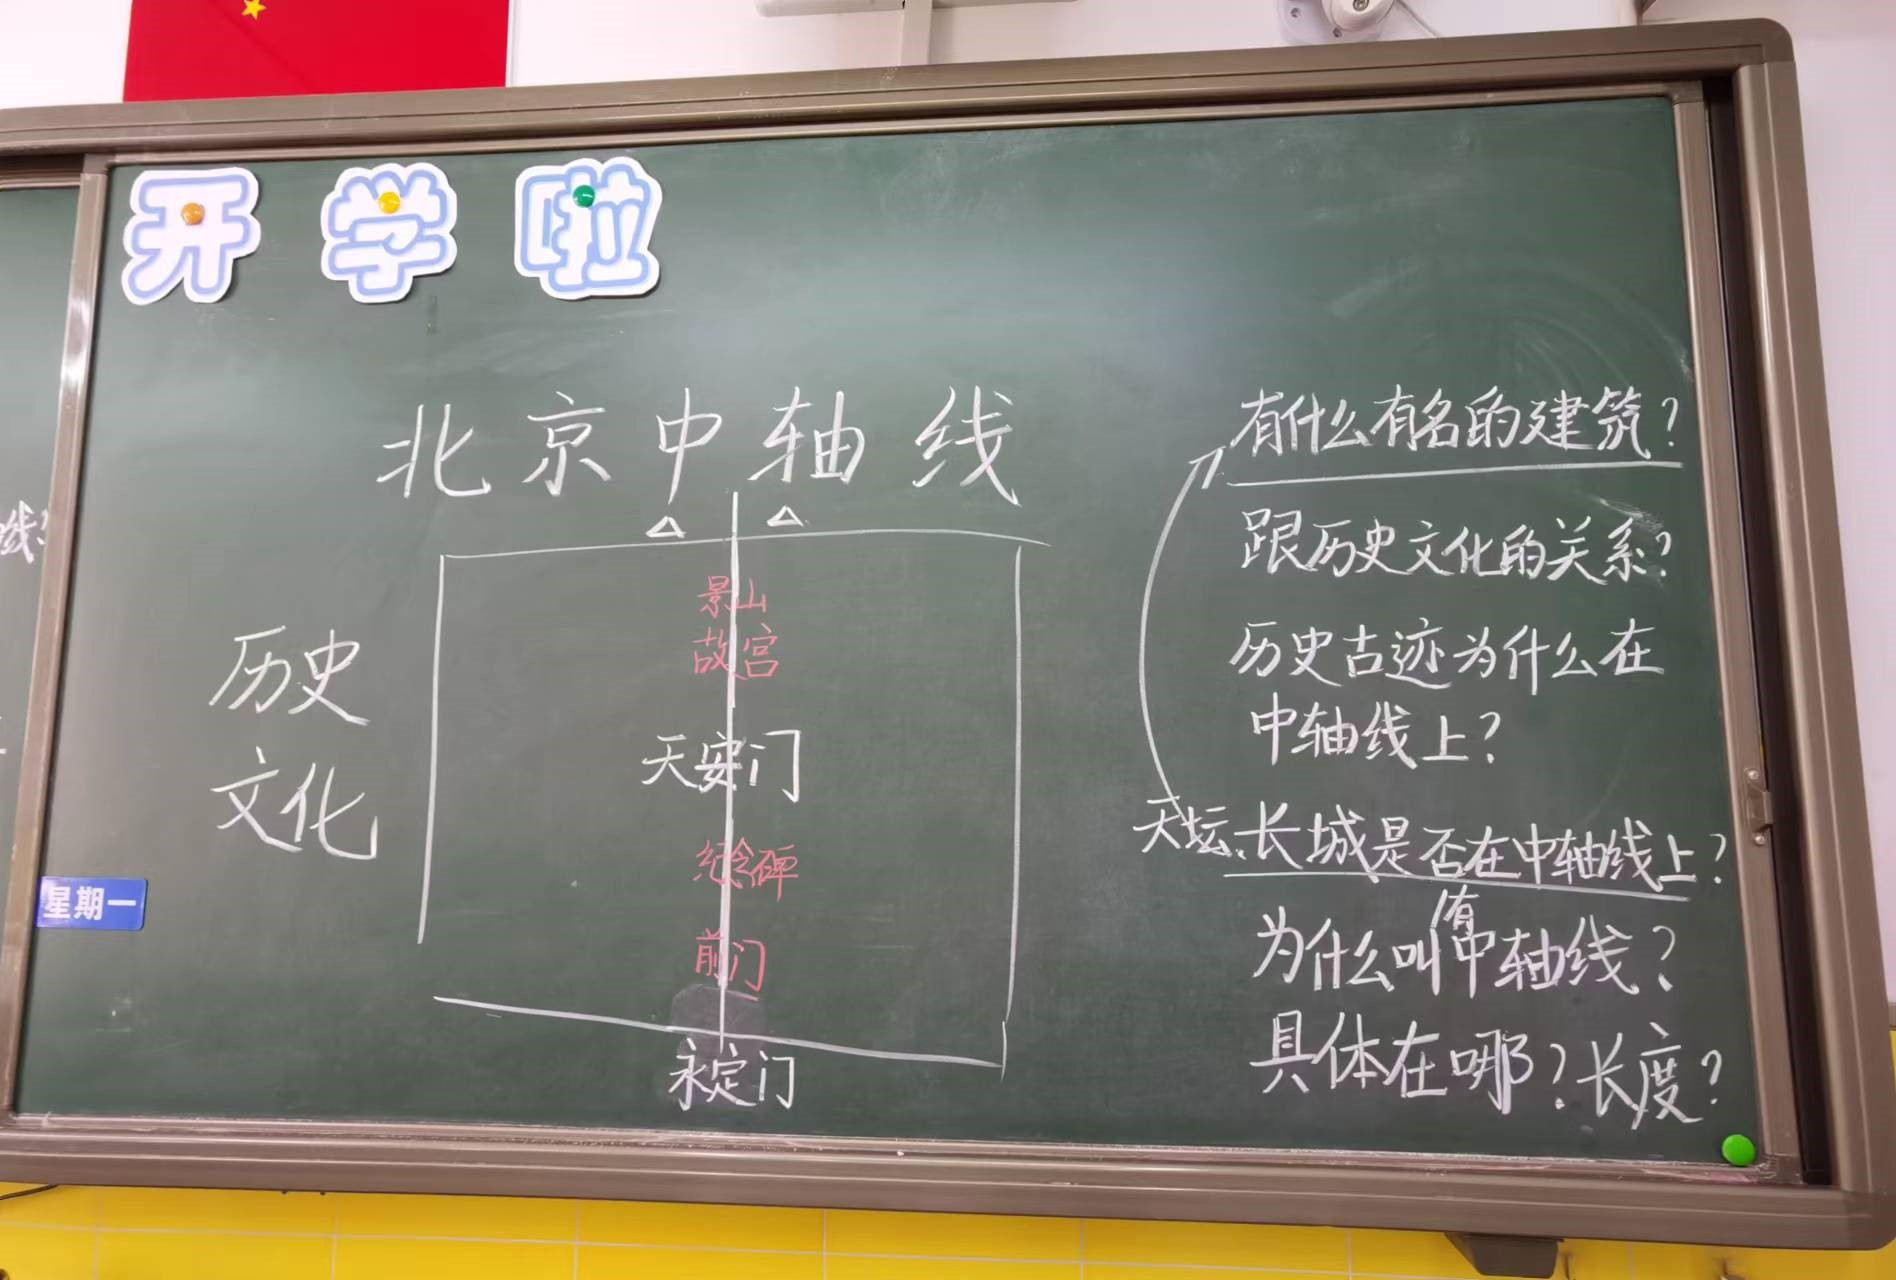 开学啦
北京中轴线
历史
文化
景山
故宫
天安门
纪念碑
前门
永定门
有什么有名的建筑?
跟历史文化的关系?
历史古迹为什么在
中轴线上?
天坛、长城是否在中轴线上?
有
为什么叫中轴线?
具体在哪?长度?
星期一
线?